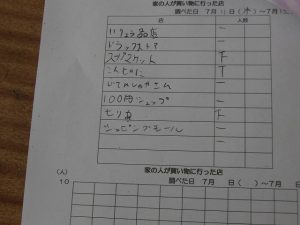 家の人が買い物に行った店
調べた日 7月11日(木)～7月
店 人数
いりょう品店 一
ドラッグストア 一
スーパーマーケット 下
こんびに 丅
じてんしゃやさん 一
100円ショップ 一
一
ショッピングモール 一
(人) 家の人が買い物に行った店
調べた日 7月 日( )～7月
10